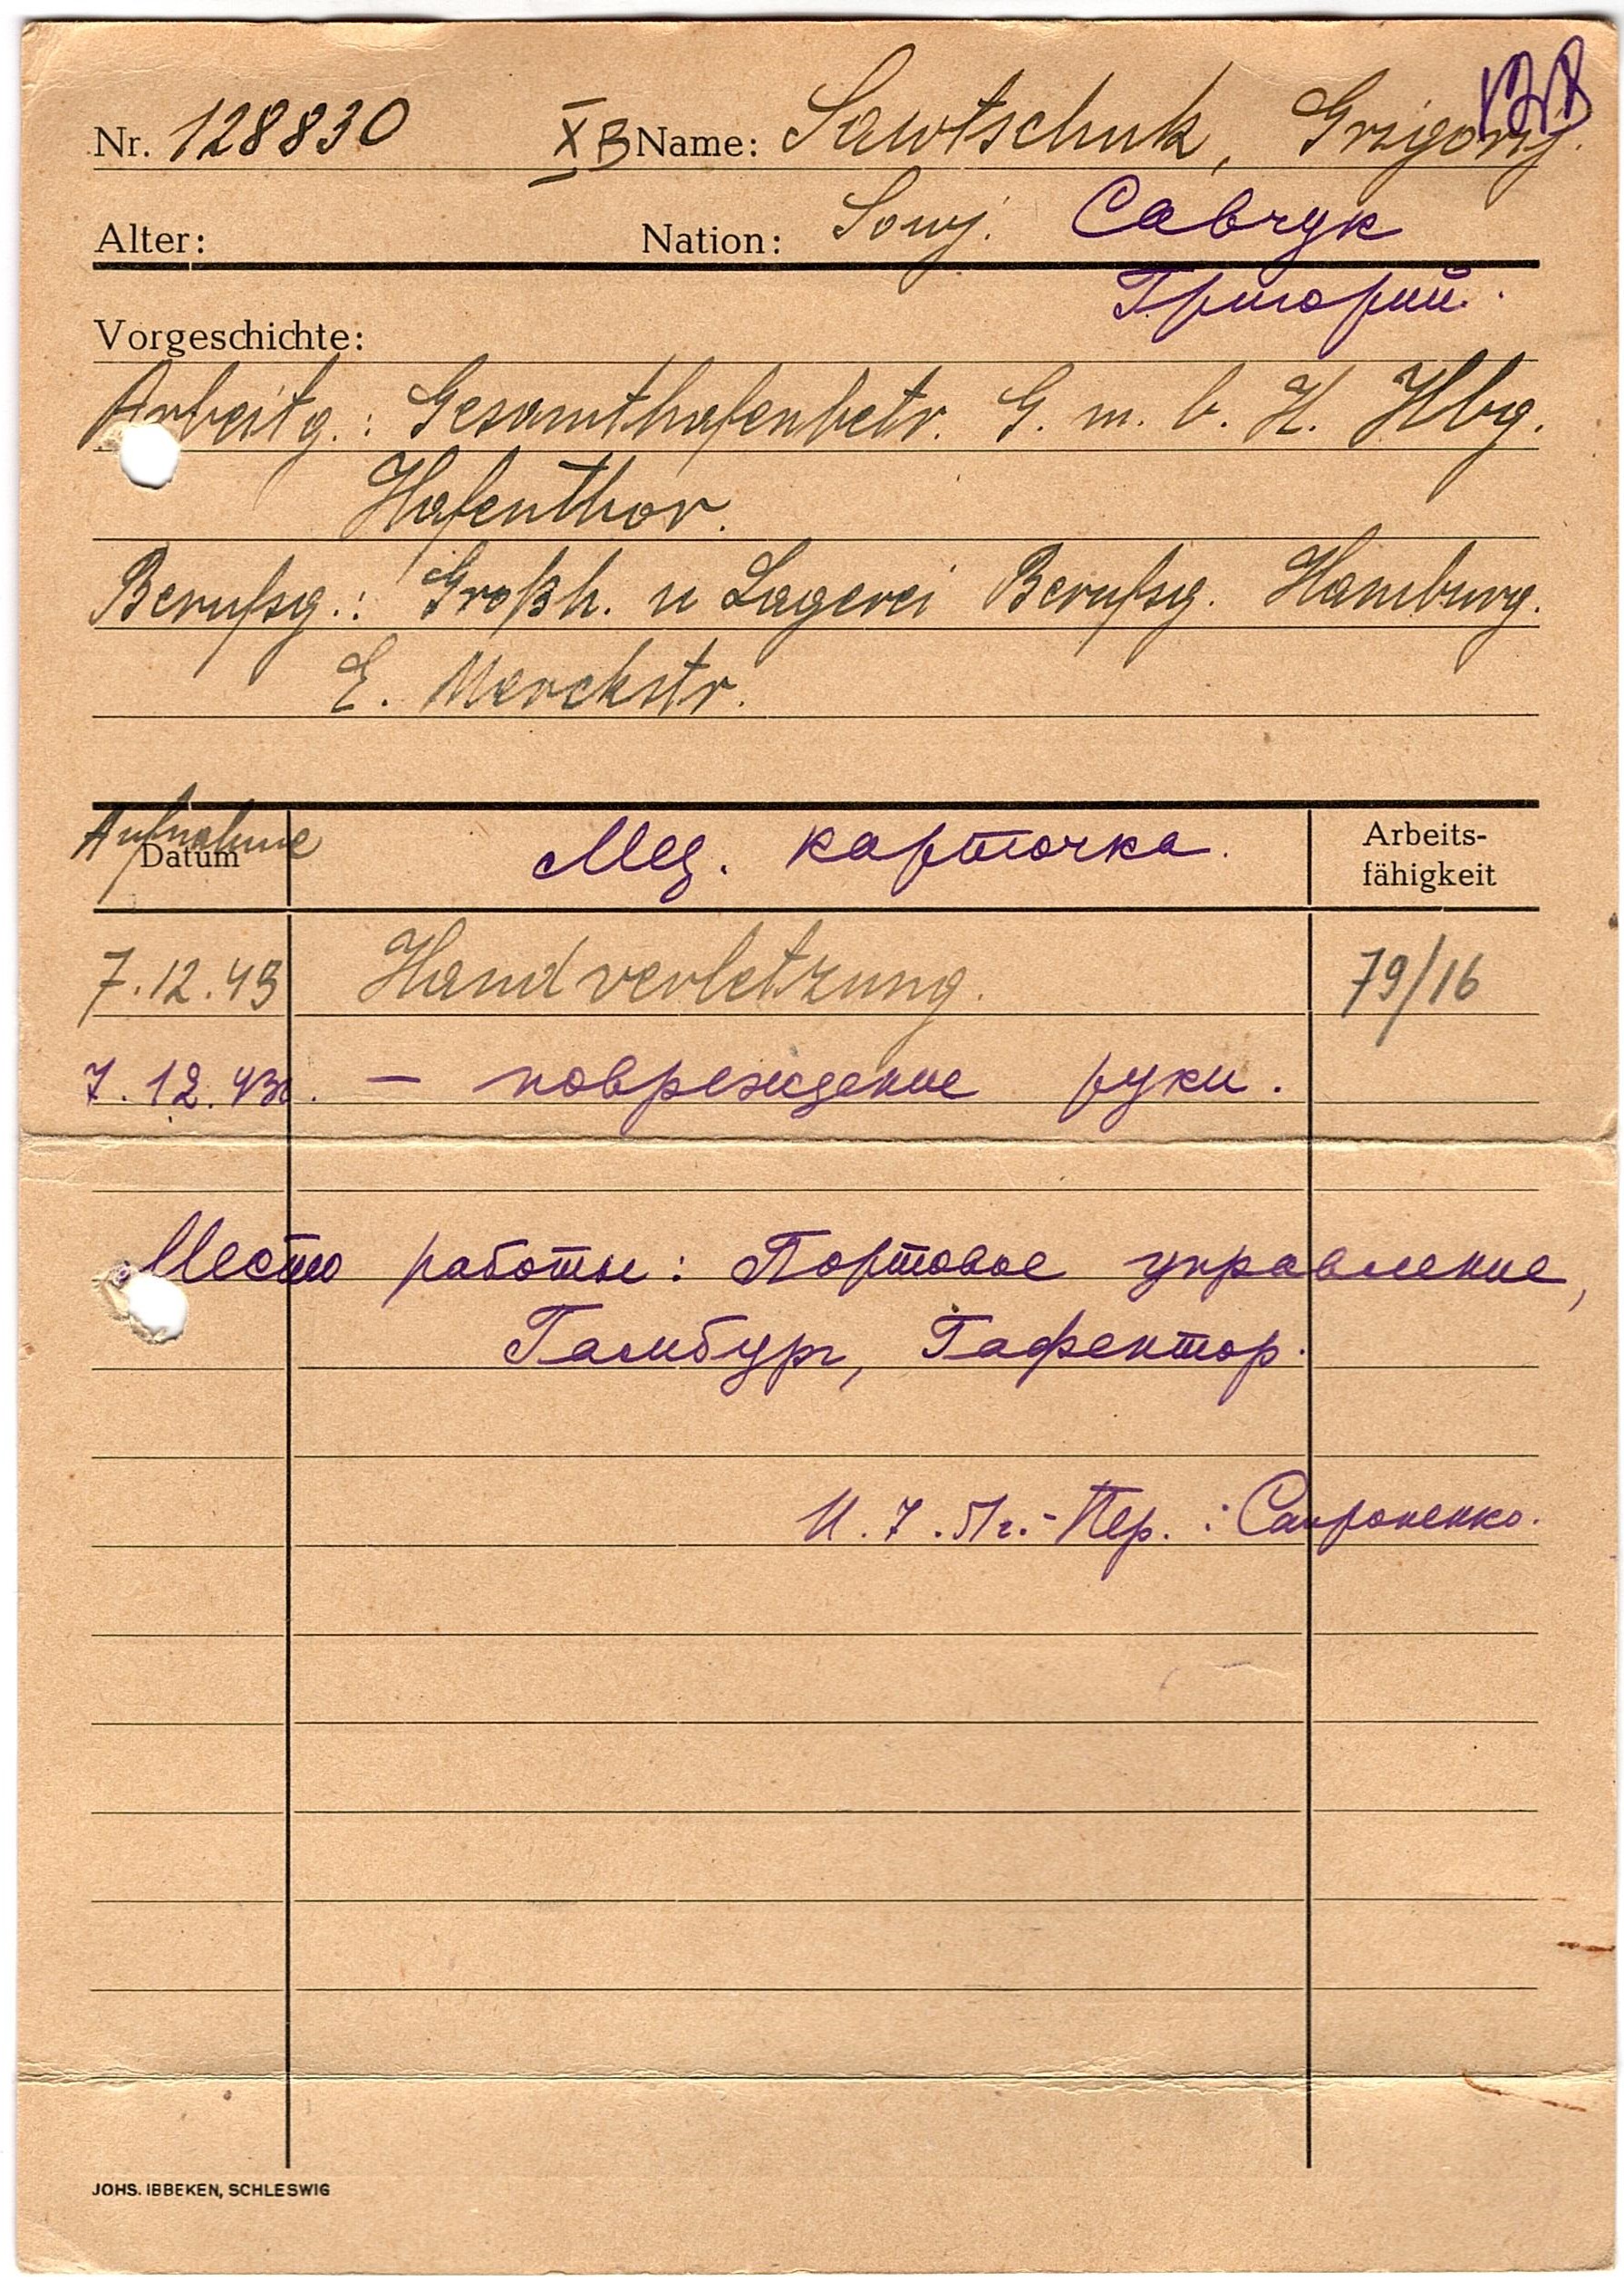 Nr. 128830 X B Name: Sawtschuk, Grigorij.
Alter: Nation: Sowj. Савчук
Григорий.
Vorgeschichte:
Arbeitg.: Gesamthafenbetr. G. m. b. H. Hbg.
Hafenthor.
Berufsg.: Großh. u Lagerei Berufsg. Hamburg.
E. Merckstr.
Aufnahme
Datum Мед. карточка. Arbeits-
fähigkeit
7.12.43 Handverletzung. 79/16
7.12.43г. — повреждение руки.
Место работы: Портовое управление,
Гамбург, Гафентор.
11.7.51г.- Пер.: Сапроненко.
JOHS. IBBEKEN, SCHLESWIG